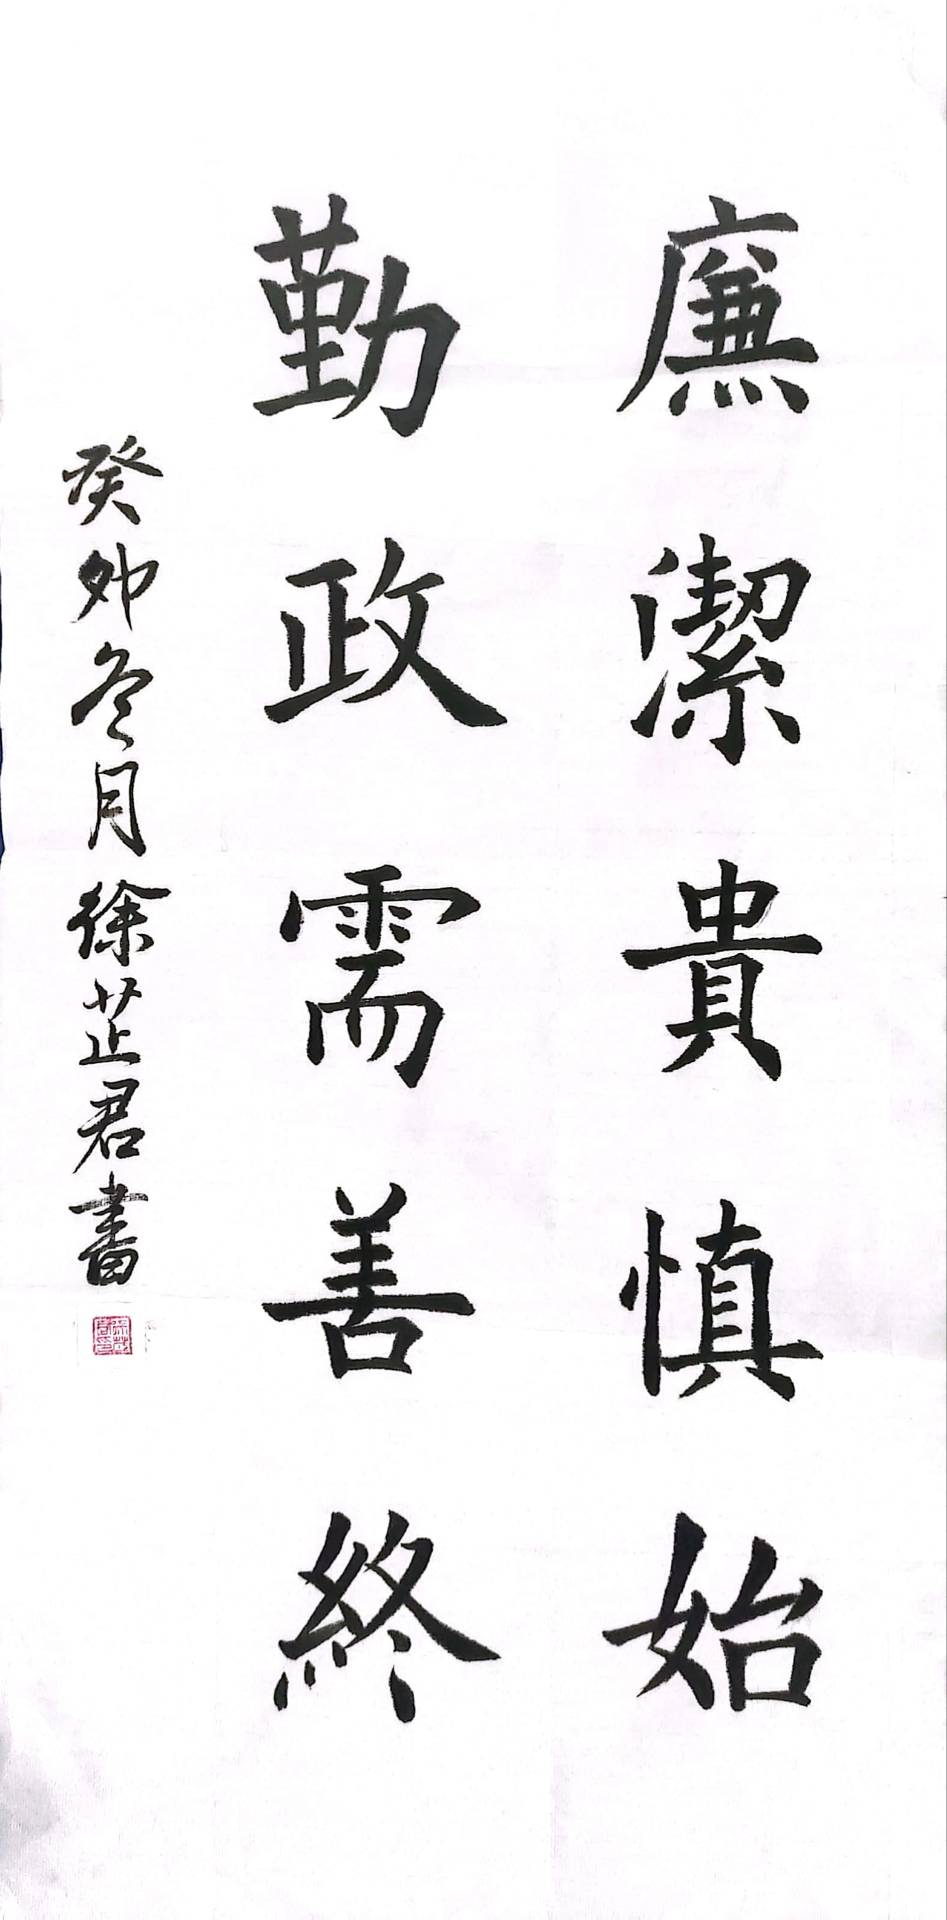 廉潔貴慎始
勤政需善終
癸卯冬月徐芷君書